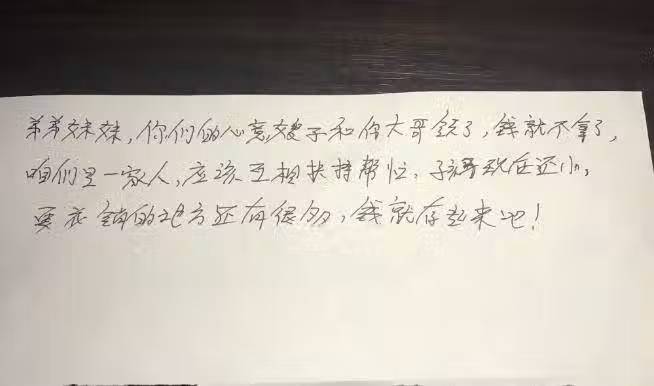 弟弟妹妹,你们的心意嫂子和你大哥领了,钱就不拿了,
咱们是一家人,应该互相扶持帮忙,孩子现在还小,
要花销的地方还有很多,钱就存起来吧!